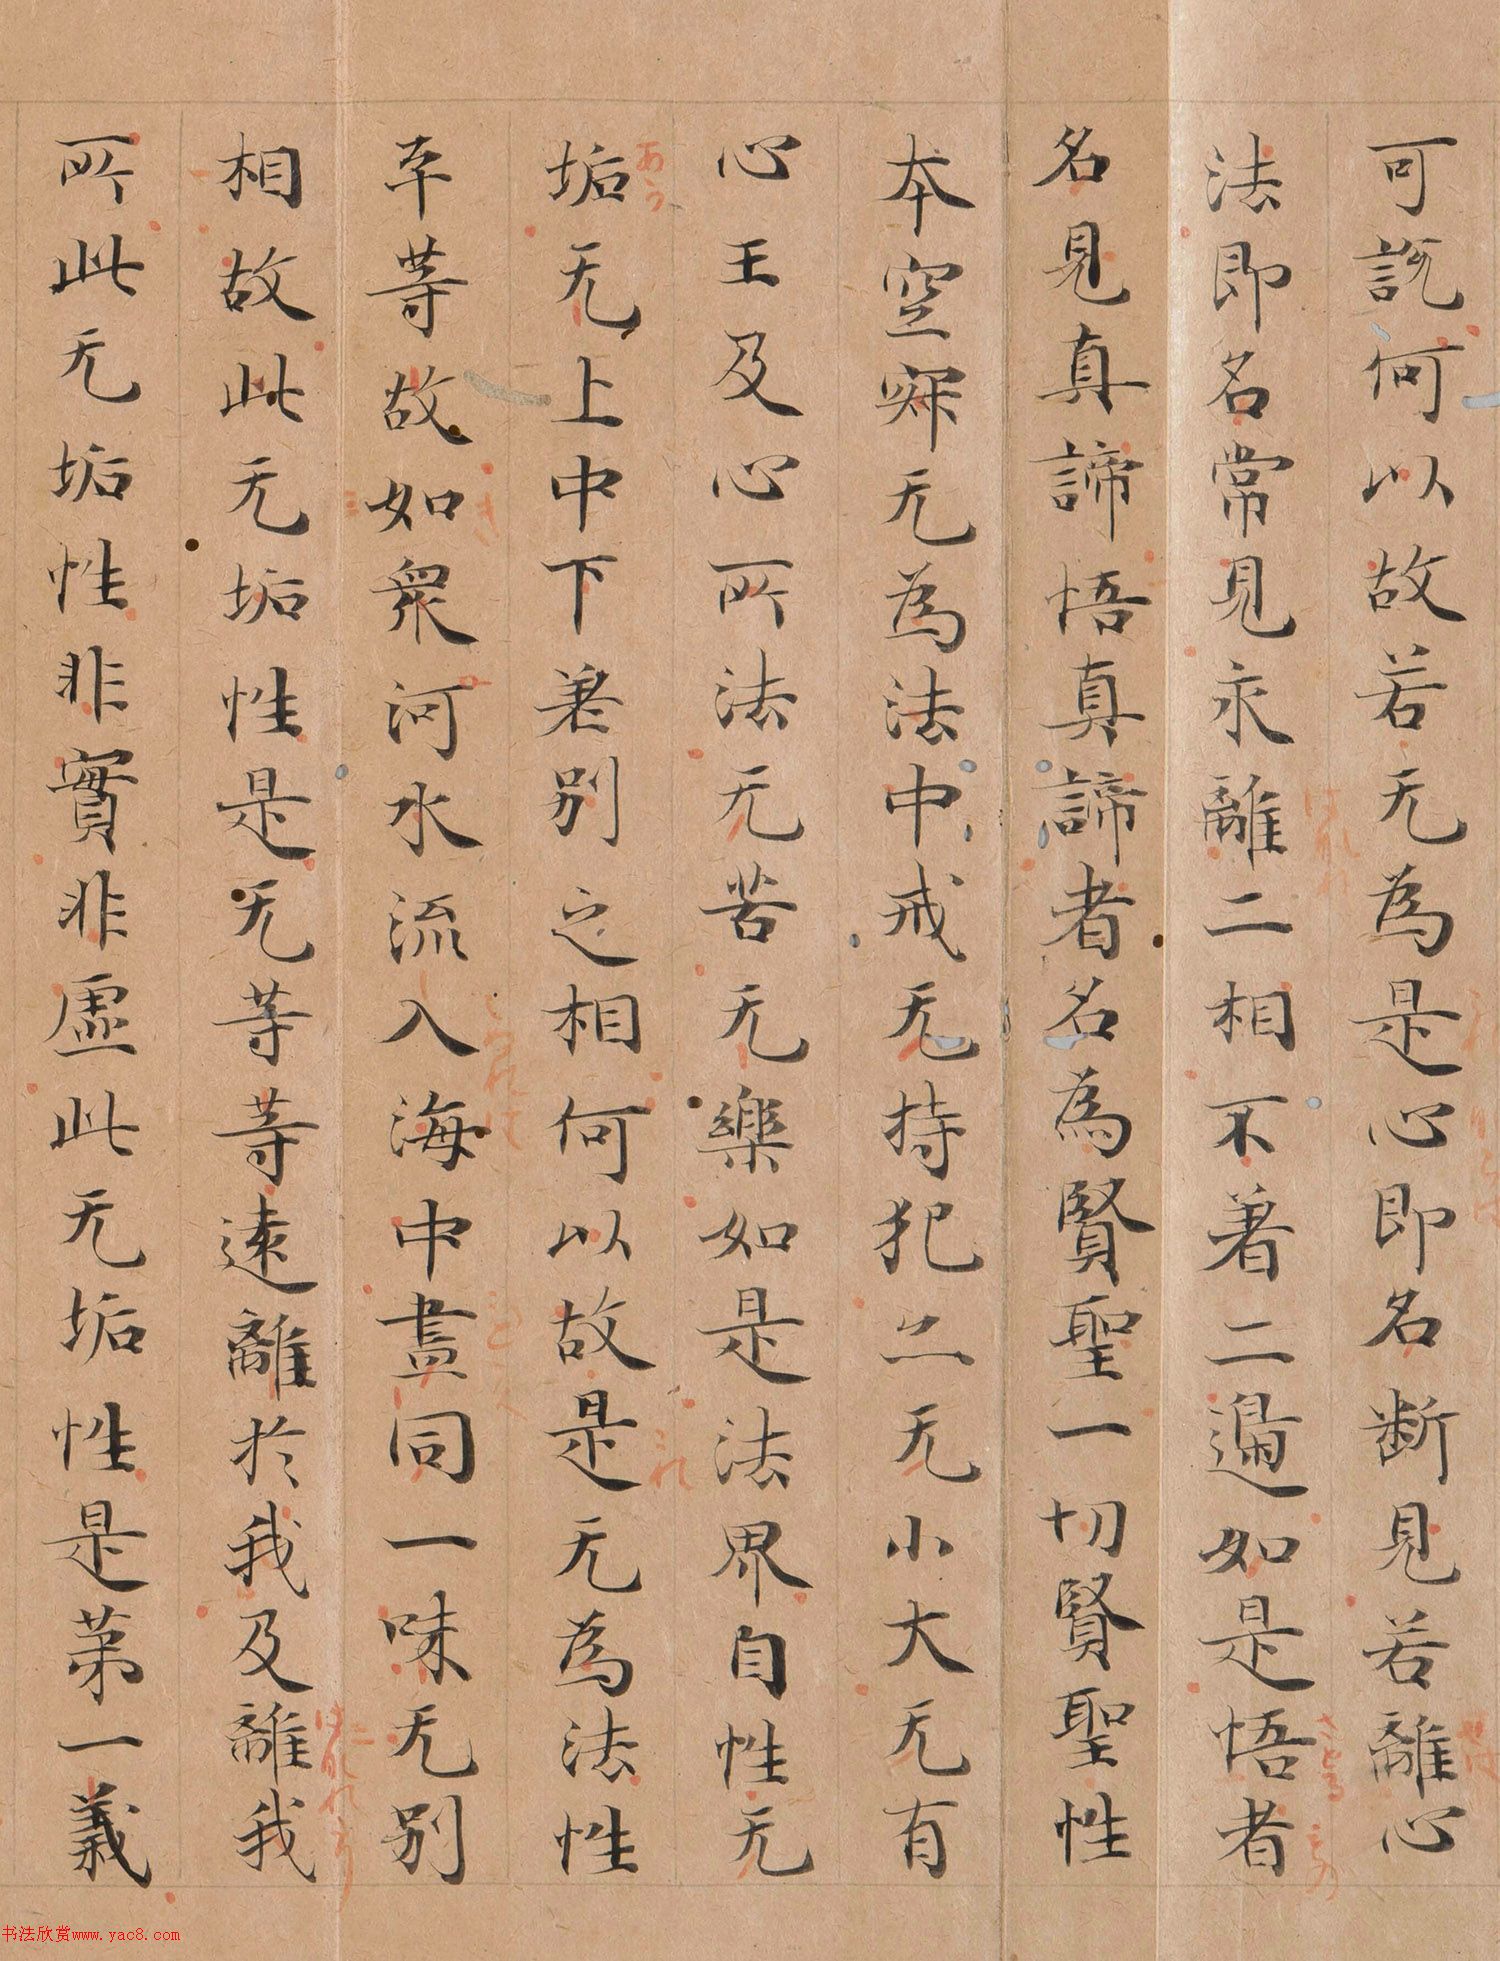 可說何以故若无為是心即名斷見若離心
法即名常見永離二相不著二邊如是悟者
名見真諦悟真諦者名為賢聖一切賢聖性
本空寂无為法中戒无持犯亦无小大无有
心王及心所法无苦无樂如是法界自性无
垢无上中下差別之相何以故是无為法性
平等故如衆河水流入海中盡同一味无別
相故此无垢性是无等等遠離於我及離我
所此无垢性非實非虛此无垢性是第一義
书法欣赏www.yac8.com